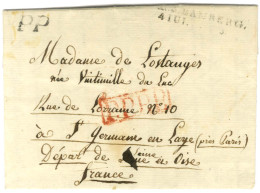 PP
R.3. BAMBERG.
4 IUI.
Madame de Lostanges
née Vintimille du Luc
Rue de Lorraine N° 10
à St Germain en Laye (près Paris)
Départ. de Seine en Oise
France